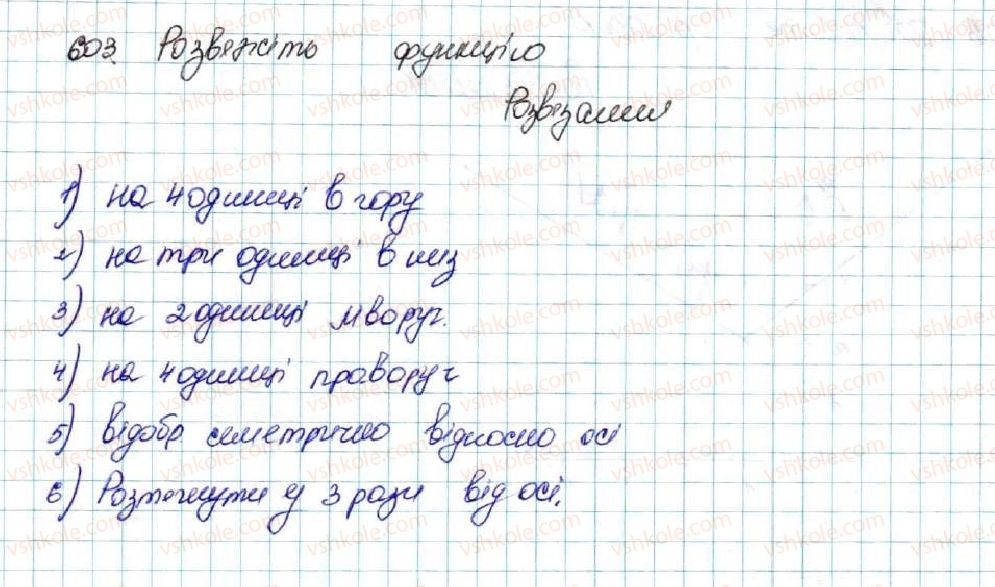 603. Розвяжіть функцію
Розвязання
1) на 4 одиниці в гору
2) на три одиниці в низ
3) на 2 одиниці ліворуч.
4) на 4 одиниці праворуч
5) відобр. симетрично відносно осі
6) Розтягнути у 3 рази від осі.